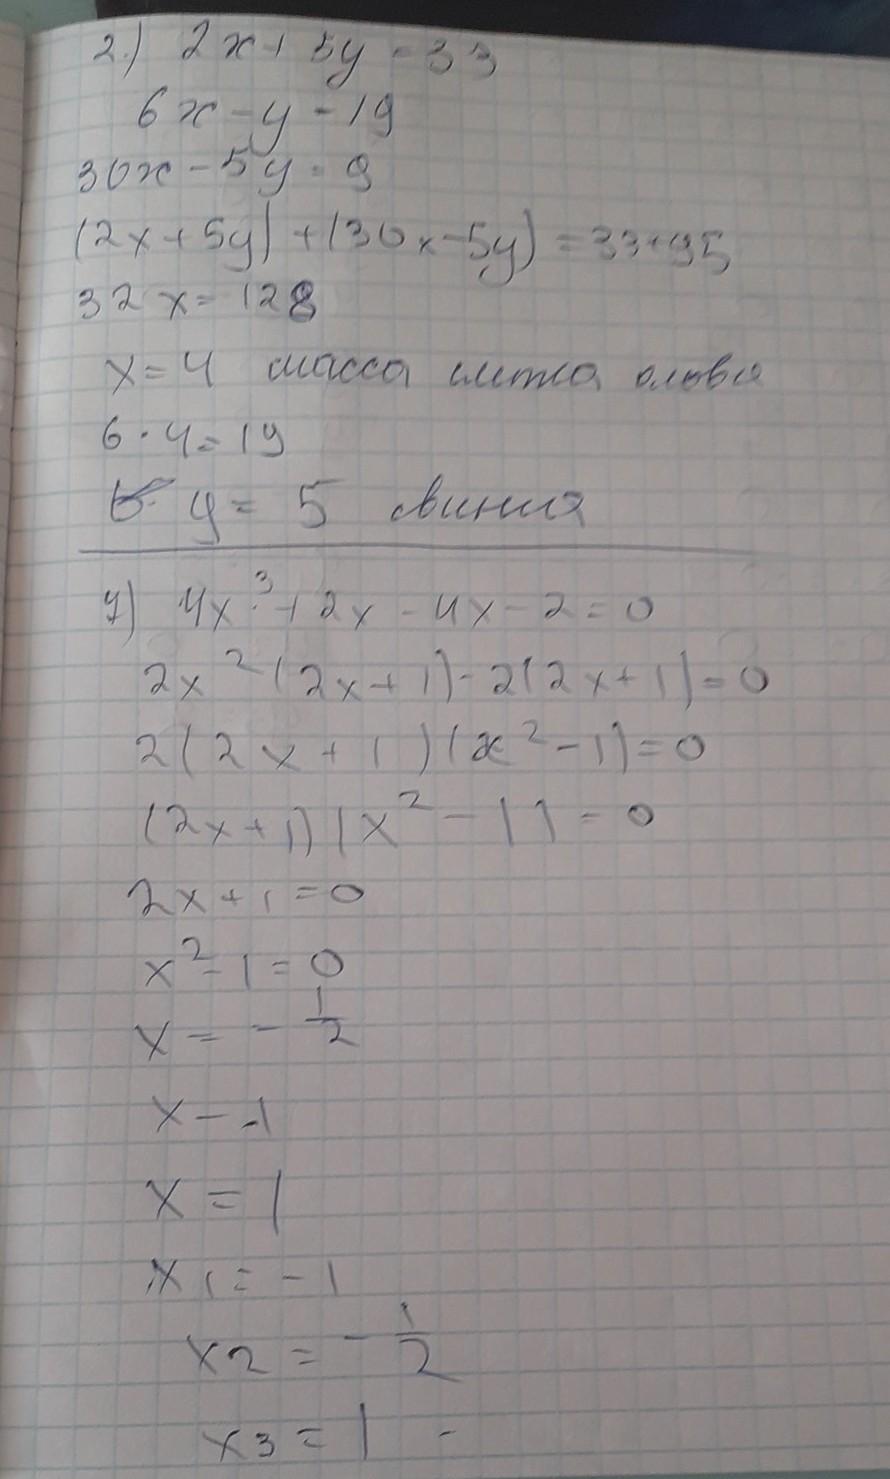 2.) 2x + 5y = 33
6x - y = 19
30x - 5y = 9
(2x + 5y) + (30x - 5y) = 33 + 95
32x = 128
x = 4 масса олова
6 · 4 = 19
y = 5 свинца
4x³ + 2x - 4x - 2 = 0
2x²(2x + 1) - 2(2x + 1) = 0
2(2x + 1)(x² - 1) = 0
(2x + 1)(x² - 1) = 0
2x + 1 = 0
x² - 1 = 0
x = - 1/2
x - 1
x = 1
x1 = - 1
x2 = - 1/2
x3 = 1 -